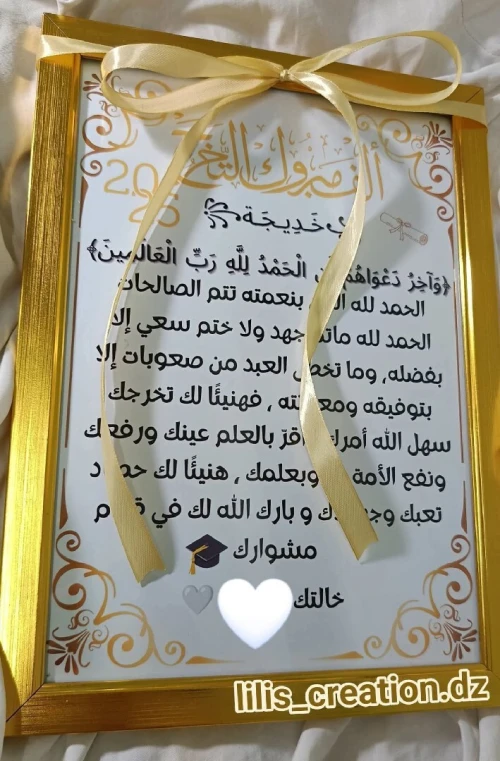 ألف مبروك التخرج
خَدِيجَة
﴿وَآخِرُ دَعْوَاهُمْ أَنِ الْحَمْدُ لِلَّهِ رَبِّ الْعَالَمِينَ﴾
الحمد لله بنعمته تتم الصالحات
الحمد لله ماتم جهد ولا ختم سعي إلا
بفضله، وما تخطى العبد من صعوبات إلا
بتوفيقه ومعونته ، فهنيئًا لك تخرجك
سهل الله أمرك وأقرّ بالعلم عينك ورفعك
ونفع الأمة وبعلمك ، هنيئًا لك حصاد
تعبك وجهدك و بارك الله لك في قادم
مشوارك
خالتك
lilis_creation.dz